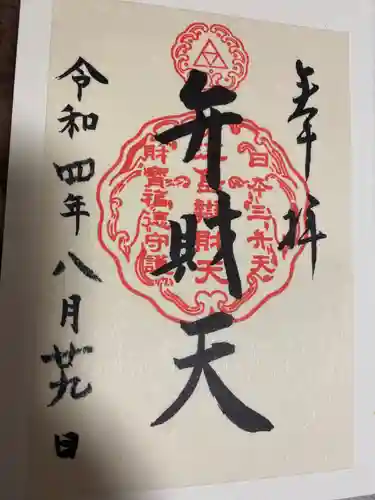 奉拝
弁財天
令和四年八月廿九日
日本三弁天
財寶福徳守護